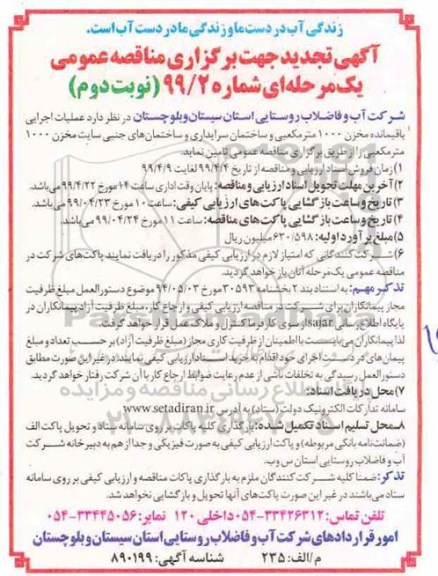 زندگی آب در دست ما و زندگی ما در دست آب است.
آگهی تجدید جهت برگزاری مناقصه عمومی
یک مرحله‌ای شماره ۹۹/۲ (نوبت دوم)
شرکت آب و فاضلاب روستایی استان سیستان وبلوچستان در نظر دارد عملیات اجرایی
باقیمانده مخزن ۱۰۰۰ مترمکعبی و ساختمان سرایداری و ساختمان‌های جنبی سایت مخزن ۱۰۰۰
مترمکعبی را از طریق برگزاری مناقصه عمومی تامین نماید.
۱) زمان فروش اسناد ارزیابی و مناقصه از تاریخ ۹۹/۴/۴ لغایت ۹۹/۴/۹
۲) آخرین مهلت تحویل اسناد ارزیابی و مناقصه: پایان وقت اداری ساعت ۱۴ مورخ ۹۹/۴/۲۲ می‌باشد.
۳) تاریخ و ساعت بازگشایی پاکت‌های ارزیابی کیفی: ساعت ۱۰ مورخ ۹۹/۰۴/۲۳ می‌باشد.
۴) تاریخ وساعت بازگشایی پاکت‌های مناقصه: ساعت ۱۱ مورخ ۹۹/۰۴/۲۴ می‌باشد.
۵) مبلغ برآورد اولیه: ۶۳۰/۵۹۸ میلیون ریال
۶) شرکت‌کنندگانی که امتیاز لازم در ارزیابی کیفی مذکور را دریافت نمایند پاکت‌های شرکت در
مناقصه عمومی یک مرحله آنان باز خواهد گردید.
تذکر مهم: به استناد بند ۲ بخشنامه ۳۰۵۹۳ مورخ ۹۴/۰۵/۰۳ موضوع دستورالعمل مبلغ ظرفیت
مجاز پیمانکاران برای شرکت در مناقصه ارزیابی کیفی و ارجاع کار، مبلغ ظرفیت آزاد پیمانکاران در
پایگاه اطلاع رسانی sajar از سوی کارفرما کنترل و ملاک عمل قرار خواهد گرفت.
لذا پیمانکاران می‌بایست با اطمینان از ظرفیت کاری مجاز (مبلغ ظرفیت آزاد) بر حسب تعداد و مبلغ
پیمان های در دست اجرای خود اقدام به خرید اسناد ارزیابی کیفی نمایند (در غیر این صورت مطابق
دستورالعمل رسیدگی به تخلفات ناشی از عدم رعایت ضوابط ارجاع کار با آن شرکت رفتار خواهد گردید.
۷) محل دریافت اسناد:
سامانه تدارکات الکترونیک دولت (ستاد) به آدرس www.setadiran.ir
۸ـ محل تسلیم اسناد تکمیل شده: بارگذاری کلیه پاکات بر روی سامانه ستاد و تحویل پاکت الف
(ضمانت‌نامه بانکی مربوطه) و پاکت ارزیابی کیفی به صورت فیزیکی و جدا از هم به دبیرخانه شرکت
آب و فاضلاب روستایی استان س و ب.
تذکر: ضمنا کلیه شرکت کنندگان ملزم به بارگذاری پاکات مناقصه و ارزیابی کیفی بر روی سامانه
ستاد می‌باشند در غیر این صورت پاکت‌های آنها تحویل و بازگشایی نخواهد شد.
تلفن تماس: ۳۳۴۲۶۳۱۲-۰۵۴ داخلی ۱۲۰ نمابر: ۳۳۴۴۵۰۵۶-۰۵۴
امور قراردادهای شرکت آب و فاضلاب روستایی استان سیستان وبلوچستان
م/الف: ۲۳۵ شناسه آگهی: ۸۹۰۱۹۹